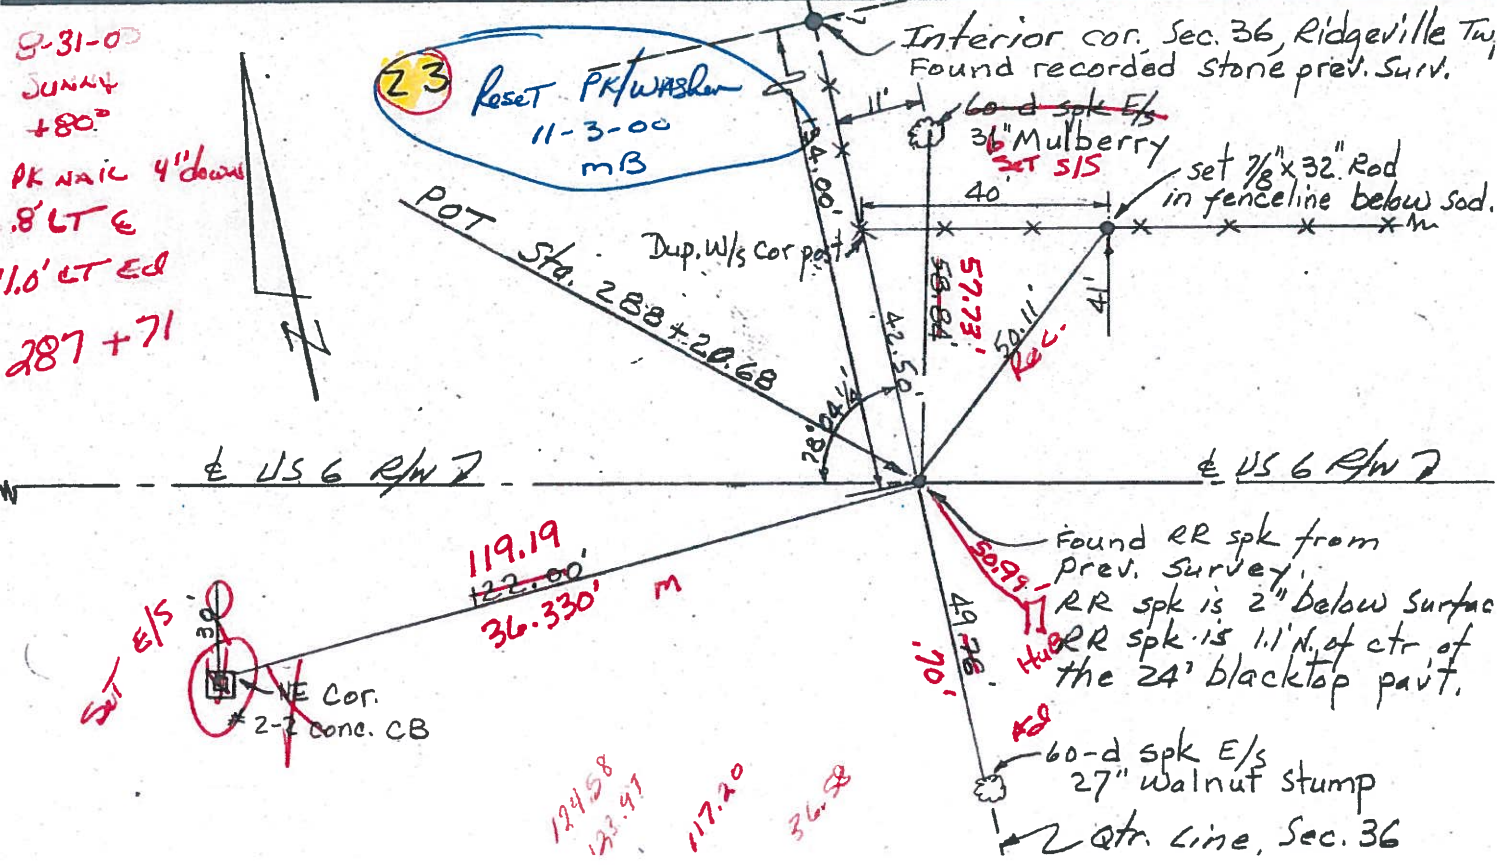 8-31-00
SUNNY
+80°
PK NAIL 4" down
.8' LT ℄
1.0' LT Ed
287+71
N
23
Reset PK/WASHER
11-3-00
mB
Interior cor. Sec. 36, Ridgeville Tw
Found recorded stone prev. surv.
11'
60-d spk E/s
36" Mulberry
SET S/S
set 7/8" x 32" Rod
in fenceline below sod.
40'
Dup. W/s cor post
34.00'
POT Sta. 288+20.68
42.50'
58.84'
57.73'
50.11'
Rec.
41'
78° 04 1/4'
℄ US 6 R/W
℄ US 6 R/W
119.19
122.00'
36.330'
m
Set E/S
30'
NE Cor.
2-2 conc. CB
Found RR spk from
prev. survey.
RR spk is 2" below surfac
RR spk is 1.1' N. of ctr of
the 24' blacktop pavt.
50.99'
Hub
49.78'
.70'
60-d spk E/s
27" Walnut Stump
Qtr. Line, Sec. 36
124.58
123.97
117.20
36.58